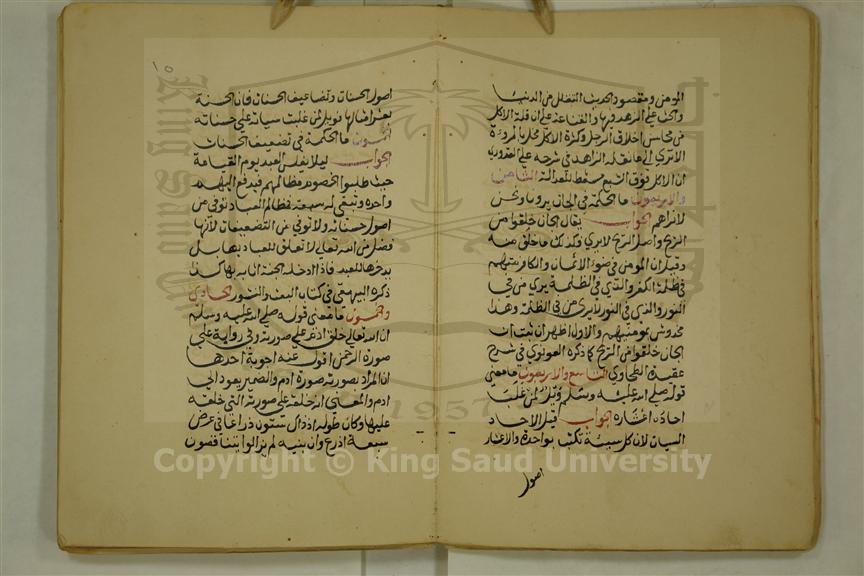 المومن ومقصود الحديث التقلل من الدنيا
والحث على الزهد فيها والقناعة على ان قلة الاكل
من محاسن اخلاق الرجل وكثرة الاكل مخل بالمروءة
الاترى الى ما نقله الزاهد في شرحه على القدوري
ان الاكل فوق الشبع مسقط للعدالة الثامن
والاربعون ما الحكمة في الجان يرونا ونحن
لانراهم الجواب يقال الجان خلقوا من
الريح واصل الريح لايرى فكذلك ما خلق منه
وقيل ان المومن في ضوء الايمان والكافر منهم
في ظلمة الكفر والذي في الظلمة يرى من في
النور والذي في النور لايرى من في الظلمة وهذا
مخدوش بمومنيهم والاول اظهر ان ثبت ان
الجان خلقوا من الريح كما ذكره القونوي في شرح
عقيدة الطحاوي التاسع والاربعون ما معنى
قوله صلى الله عليه وسلم ويل لمن غلبت
احاده اعشاره الجواب قيل الاحاد
السيئات لان كل سيئة تكتب بواحدة والاعشار
اصول
١٥
اصول الحسنات وتضاعيف الحسنات فان الحسنة
بعشر امثالها فويل لمن غلبت سيئاته على حسناته
الخمسون ما الحكمة في تضعيف الحسنات
الجواب ليلا يفلس العبد يوم القيامة
حيث طلبوا الخصوم مظالمهم فيدفع اليهم
واحدة وتبقى له تسعة فظالم العباد توفى من
اصول حسناته ولا توفى من التضعيفات لانها
فضل من الله تعالى لا تعلق للعباد بها بل
يدخرها للعبد فاذا ادخله الجنة اثابه بها كذا
ذكره البيهقي في كتاب البعث والنشور الحادي
والخمسون ما معنى قوله صلى الله عليه وسلم
ان الله تعالى خلق ادم على صورته وفي رواية على
صورة الرحمن اقول عنه اجوبة احدها
ان المراد بصورته صورة ادم والضمير يعود الى
ادم والمعنى انه خلقه على صورته التي خلقه
عليها وكان طوله اذ ذاك ستون ذراعا في عرض
سبعة اذرع وان بنيه لم يزالوا يتناقصون
1957
Copyright © King Saud University